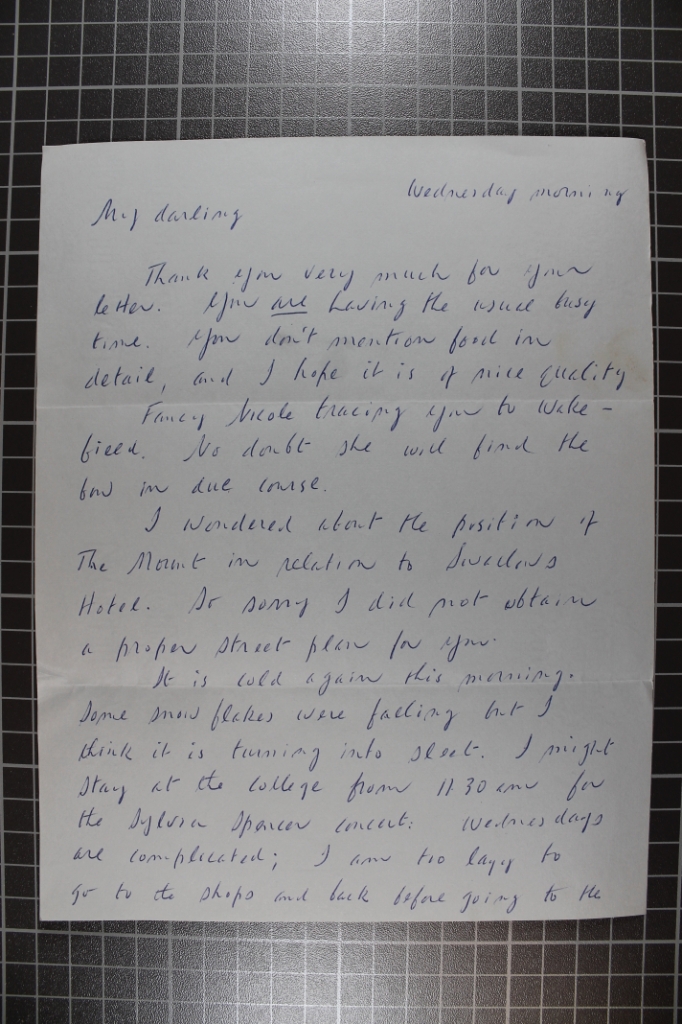 Wednesday morning
My darling
Thank you very much for your
letter. You are having the usual busy
time. You don't mention food in
detail, and I hope it is of nice quality
Fancy Nicole tracing you to Wake-
field. No doubt she will find the
in due course.
I wondered about the position of
The Mount in relation to Swallows
Hotel. So sorry I did not obtain
a proper street plan for you.
It is cold again this morning.
Some snow flakes were falling but I
think it is turning into sleet. I might
stay at the College from 11.30 am for
the Sylvia Spencer concert: Wednesdays
are complicated; I am too lazy to
go to the shops and back before going to the